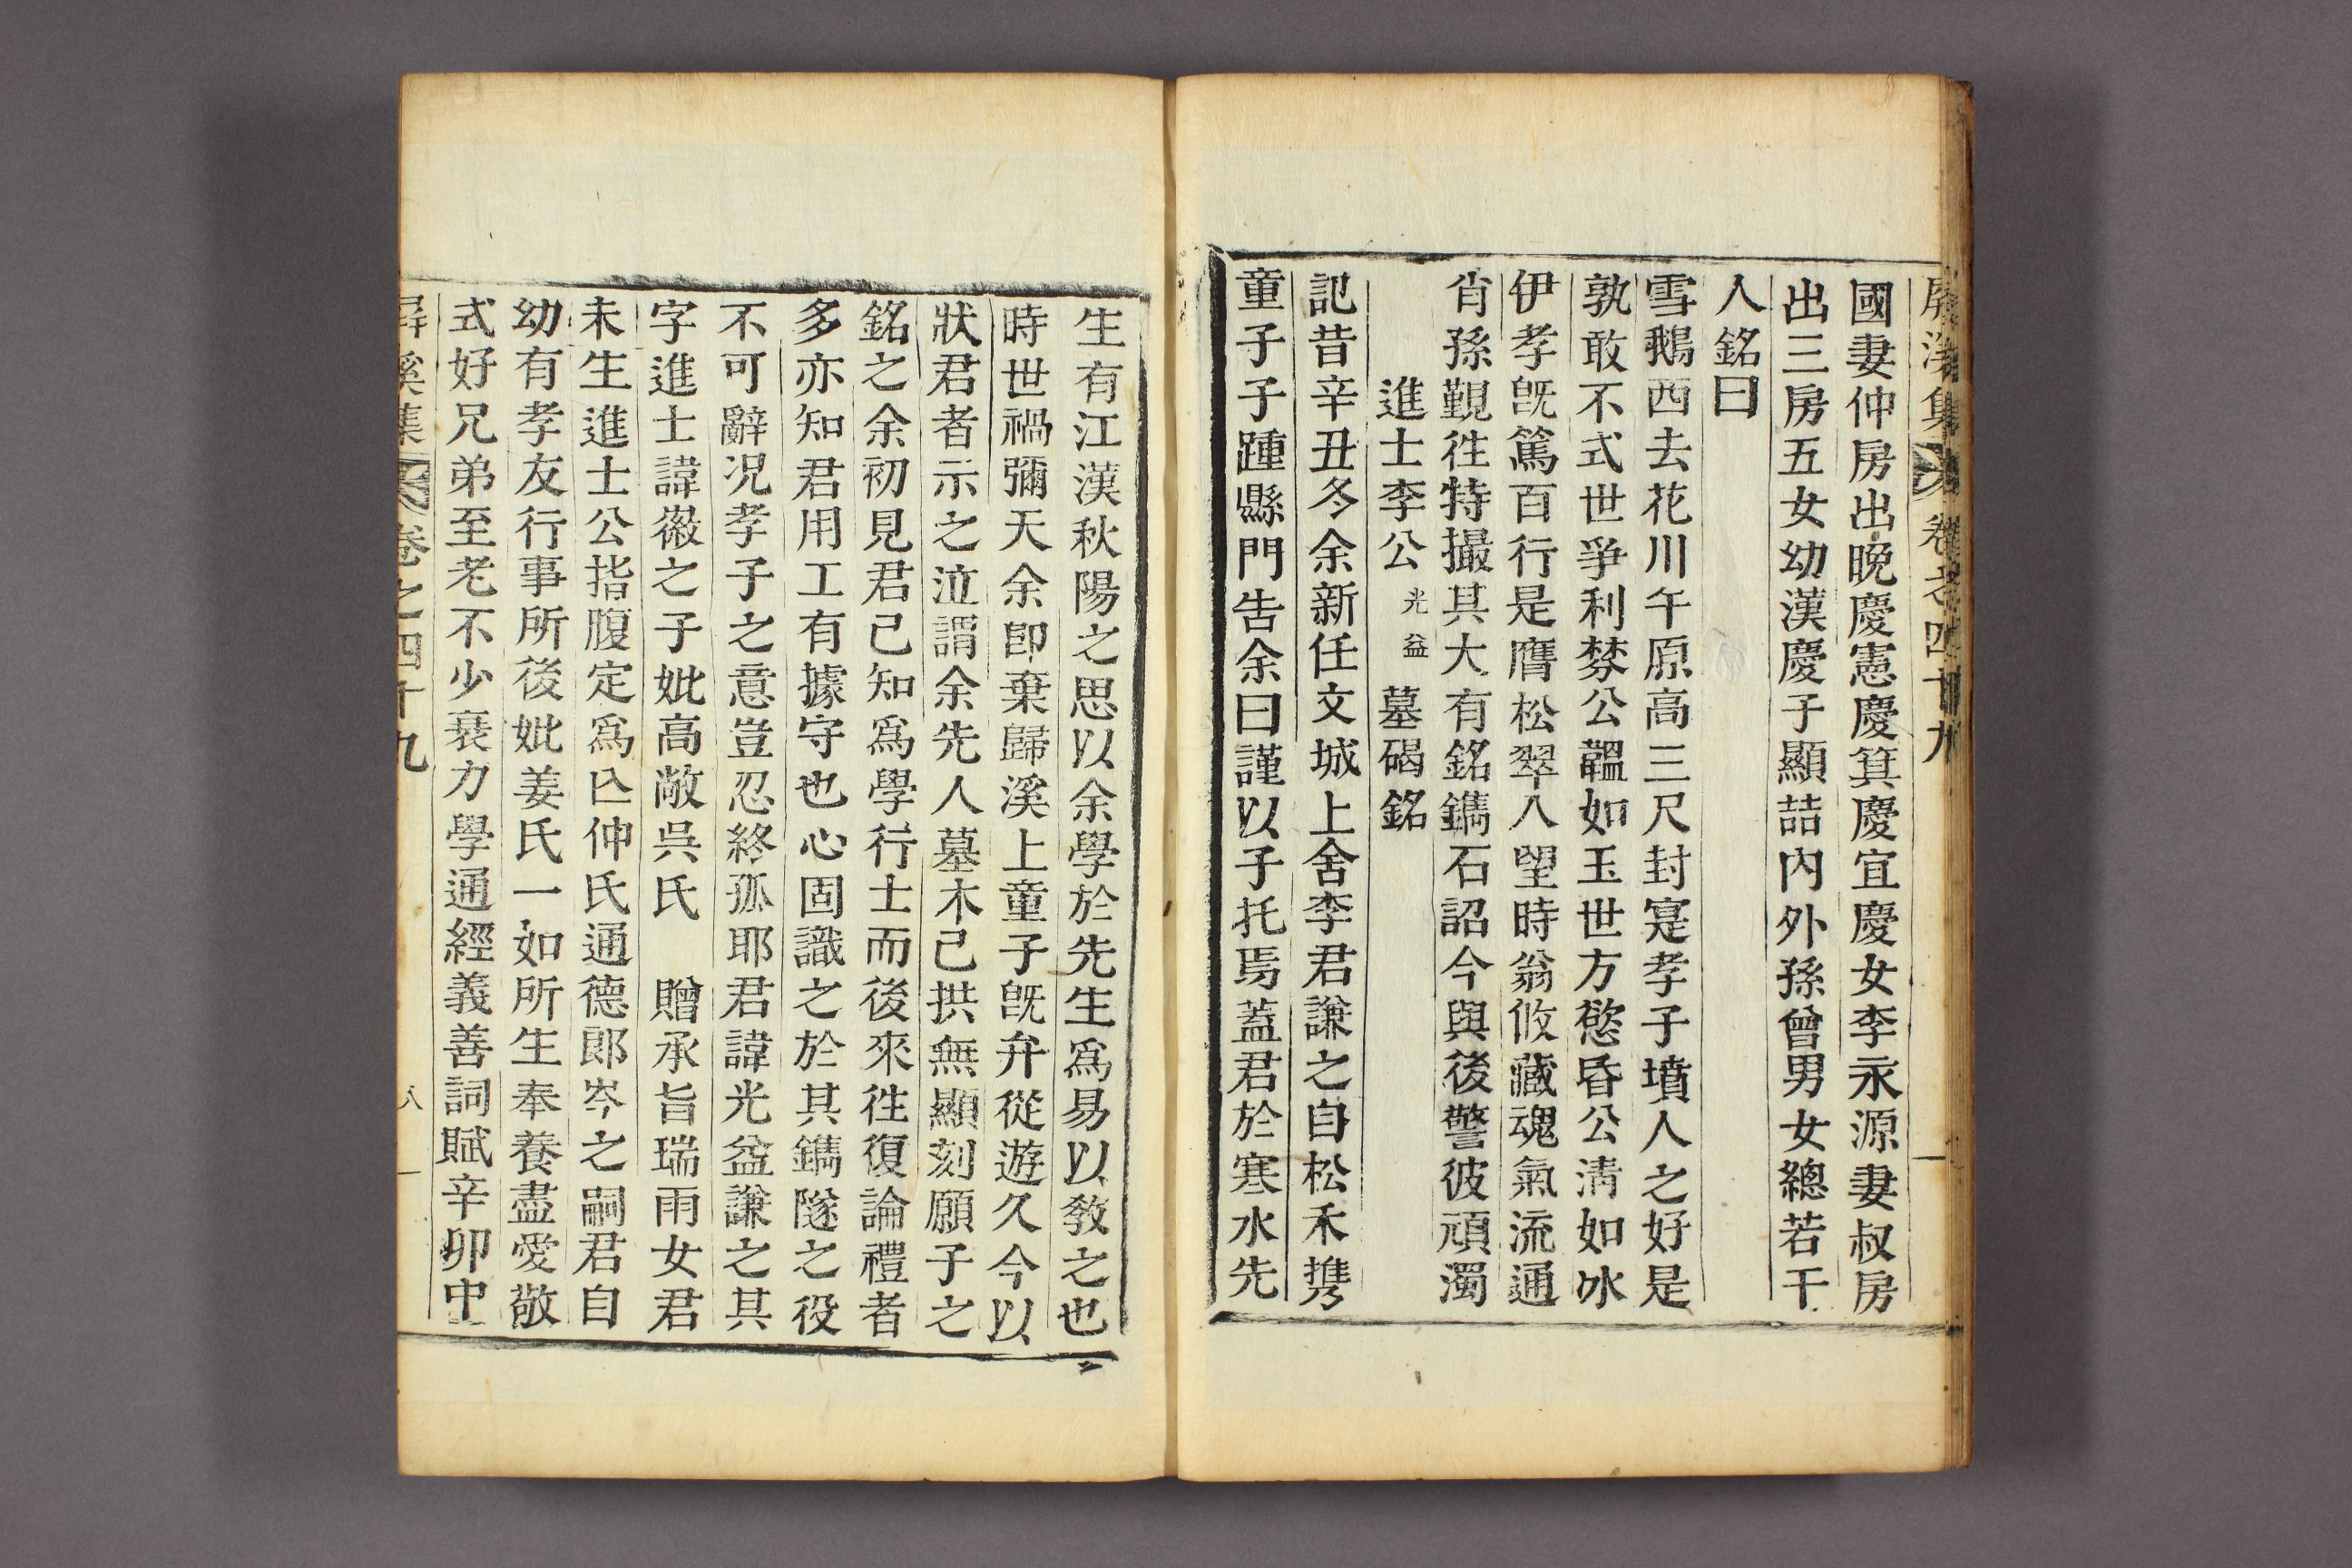 屛溪集 卷之四十九
國妻仲房出晩慶憲慶箕慶宜慶女李永源妻叔房
出三房五女幼漢慶子顯喆內外孫曾男女總若干
人銘曰
雪鵝西去花川午原高三尺封寔孝子墳人之好是
孰敢不式世爭利棼公韞如玉世方慾昏公淸如氷
伊孝旣篤百行是膺松翠入望時翁攸藏魂氣流通
肖孫覲徃特撮其大有銘鐫石詔今與後警彼頑濁
進士李公光益墓碣銘
記昔辛丑冬余新任文城上舍李君謙之自松禾携
童子子踵縣門告余曰謹以子托焉蓋君於寒水先
生有江漢秋陽之思以余學於先生爲易以敎之也
時世禍彌天余卽棄歸溪上童子旣弁從遊久今以
狀君者示之泣謂余先人墓木已拱無顯刻願子之
銘之余初見君已知爲學行士而後來徃復論禮者
多亦知君用工有據守也心固識之於其鐫隧之役
不可辭况孝子之意豈忍終孤耶君諱光益謙之其
字進士諱㣲之子妣高敞吳氏 贈承旨瑞雨女君
未生進士公指腹定爲亾仲氏通德郞岑之嗣君自
幼有孝友行事所後妣姜氏一如所生奉養盡愛敬
式好兄弟至老不少衰力學通經義善詞賦辛卯中
屛溪集 卷之四十九 八